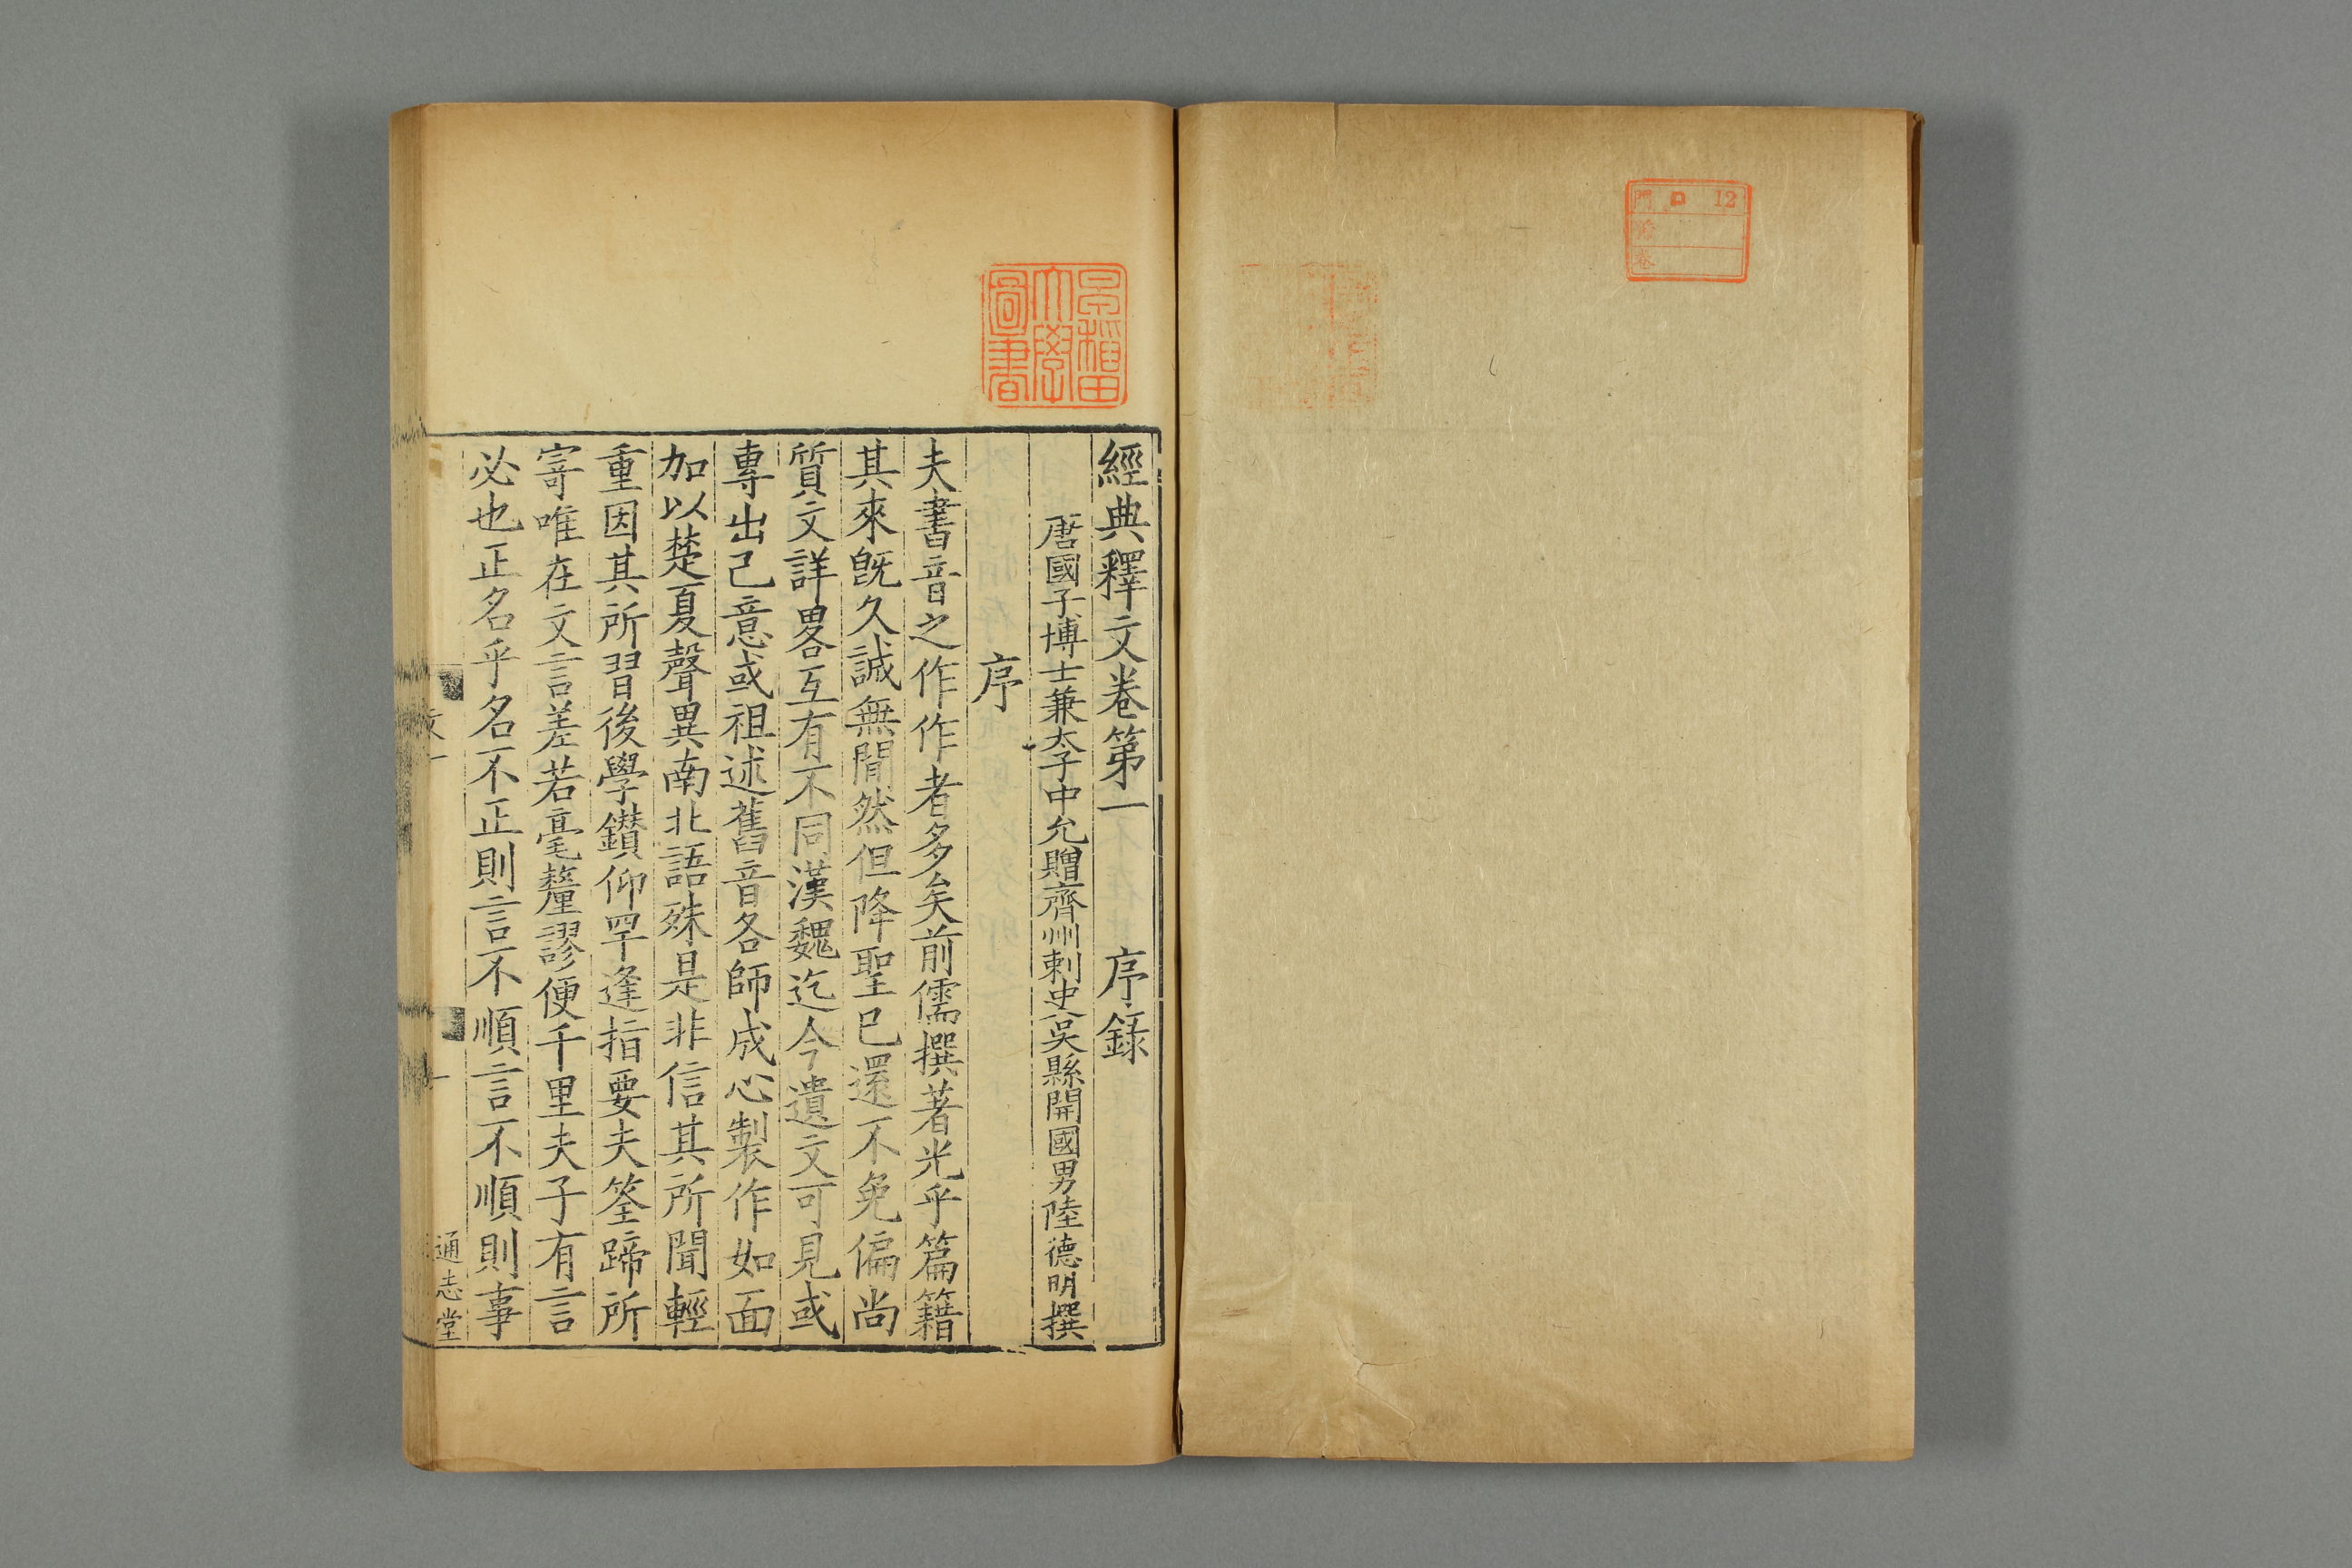 門 口 12
號
卷
早稲田
大學
圖書
經典釋文卷第一 序録
唐國子博士兼太子中允贈齊州刺史吳縣開國男陸德明撰
序
夫書音之作作者多矣前儒撰著光乎篇籍
其來旣久誠無閒然但降聖已還不免偏尚
質文詳畧互有不同漢魏迄今遺文可見或
專出己意或祖述舊音各師成心製作如面
加以楚夏聲異南北語殊是非信其所聞輕
重因其所習後學鑽仰罕逢指要夫筌蹄所
寄唯在文言差若毫釐謬便千里夫子有言
必也正名乎名不正則言不順言不順則事
通志堂